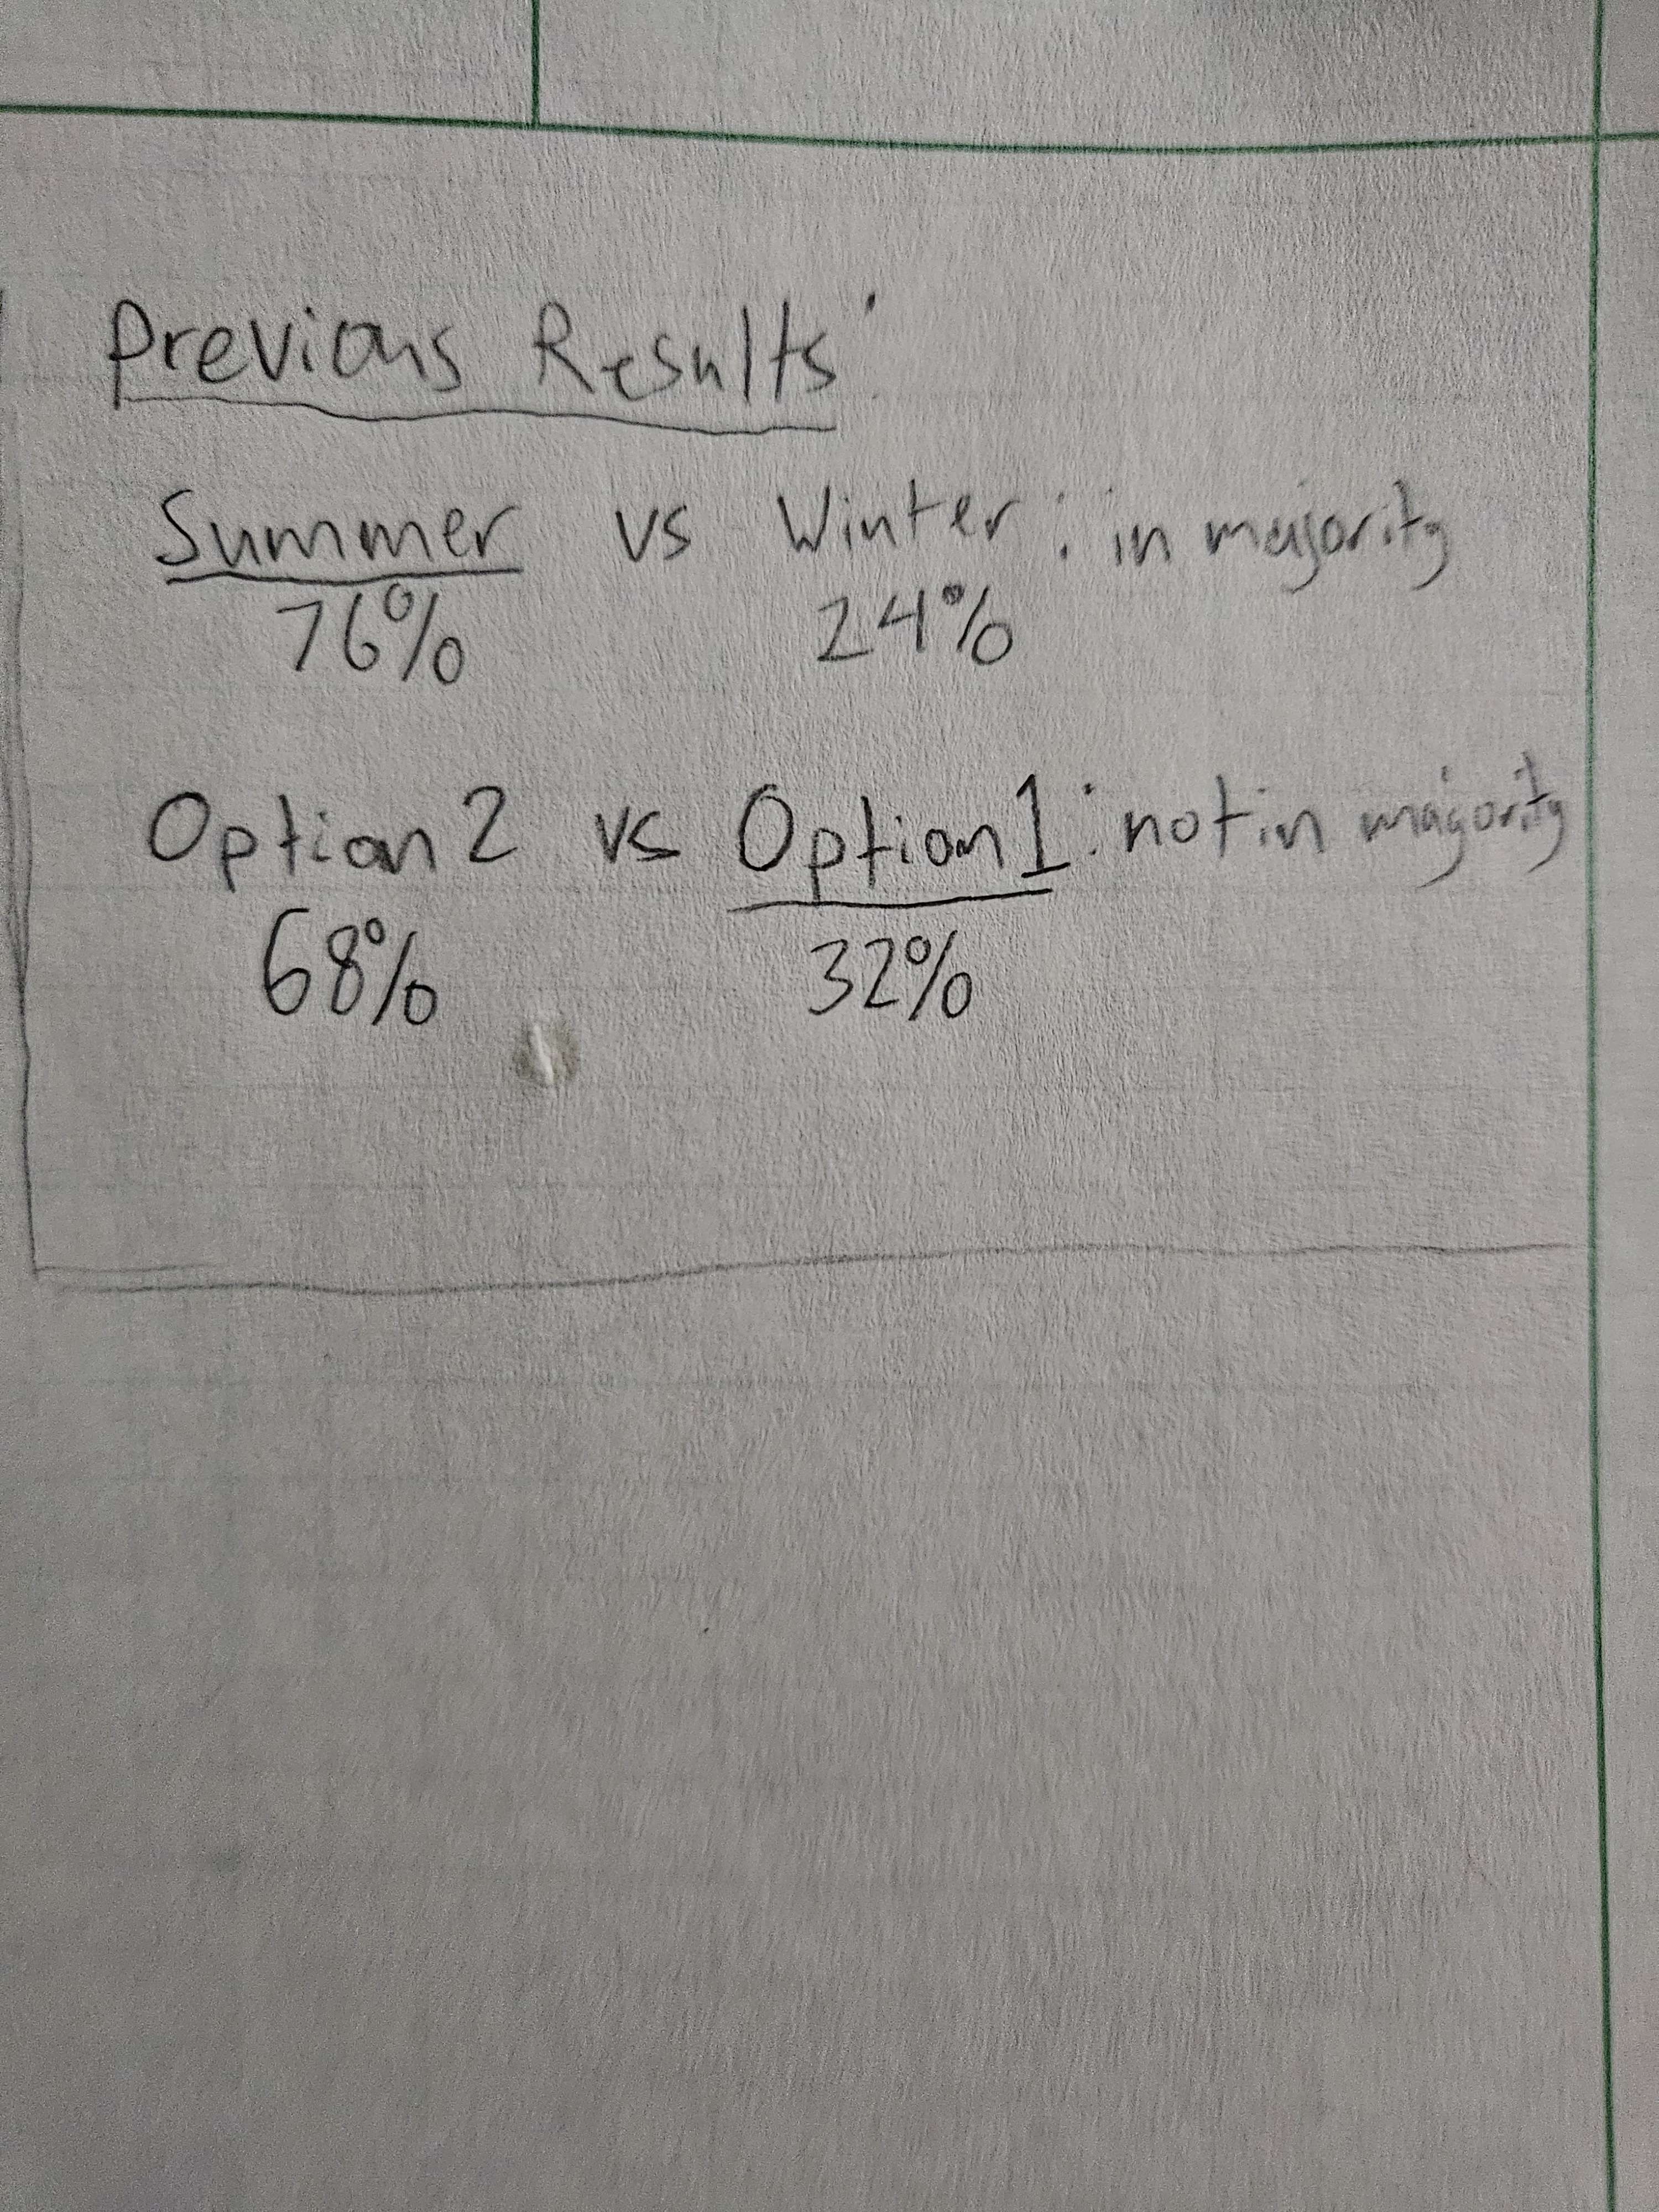 Previous Results:
Summer vs Winter: in majority
76% 24%
Option 2 vs Option 1: not in majority
68% 32%